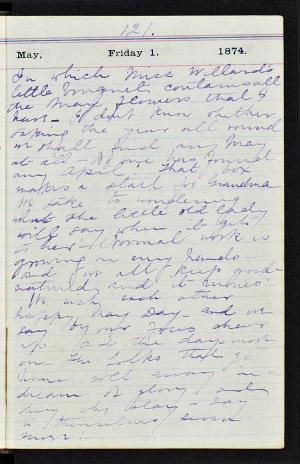 121.
May, Friday 1. 1874.
In which Miss Willard's
little bouquet contains all
the May flowers that I
have – I don't know whether
taking the year all round
we shall find any May
at all – No one has found
any April. That box
makes a start for Grandma
We take to wondering
what the little old lady
will say when it gets
to her. Normal work is
growing on my hands –
and we all keep good
natured and it
We wish each other
happy May Day – and we
say by our
up – and the day
on. The folks that go
home will away in a
dream of glory, and
they who stay – say
to themselves seven
more.